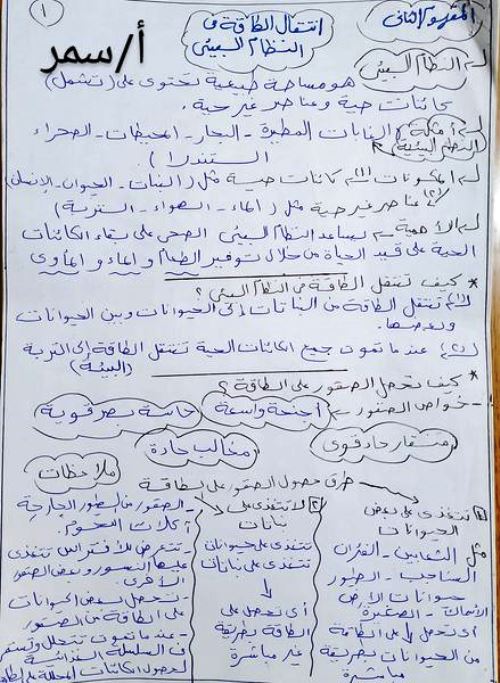 ١
المفهوم الثانى
انتقال الطاقة فى
النظام البيئى
أ/سمر
النظام البيئى
هو مساحة طبيعية تحتوى على (تشمل)
كائنات حية وعناصر غير حية.
أمثلة الغابات المطيرة - البحار - المحيطات - الصحراء
النظم البيئية
التندرا)
المكونات (١) كائنات حية مثل (النبات - الحيوان - الإنسان)
(٢) عناصر غير حية مثل (الماء - الهواء - التربة)
الأهمية يساعد النظام البيئى الصحى على بقاء الكائنات
الحية على قيد الحياة من خلال توفير الطعام والماء والمأوى
* كيف تنتقل الطاقة فى النظام البيئى؟
(١) تنتقل الطاقة من النباتات إلى الحيوانات وبين الحيوانات
وبعضها.
(٢) عندما تموت جميع الكائنات الحية تنتقل الطاقة إلى التربة
(البيئة)
* كيف تحصل الصقور على الطاقة؟
- خواص الصقور أجنحة واسعة حاسة بصر قوية
منقار حاد قوى مخالب حادة
ملاحظات
طرق حصول الصقور على الطاقة
١ تتغذى على بعض
الحيوانات
مثل الثعابين - الفئران
السناجب - الطيور
حيوانات الأرض
الأسماك - الصغيرة
أى تحصل على الطاقة
من الحيوانات بطريقة
مباشرة
٢ لا تتغذى على
نباتات
تتغذى على حيوانات
تتغذى على نباتات
أى تحصل على
الطاقة بطريقة
غير مباشرة
- الصقور من الطيور الجارحة
آكلات اللحوم.
- تتعرض للافتراس تتغذى
عليها النسور وبعض الصقور
الأخرى.
- تحصل بعض الحيوانات
على الطاقة من الصقور
- عندما تموت تتحلل وتستمر
فى السلسلة الغذائية
لحصول الكائنات المحللة على